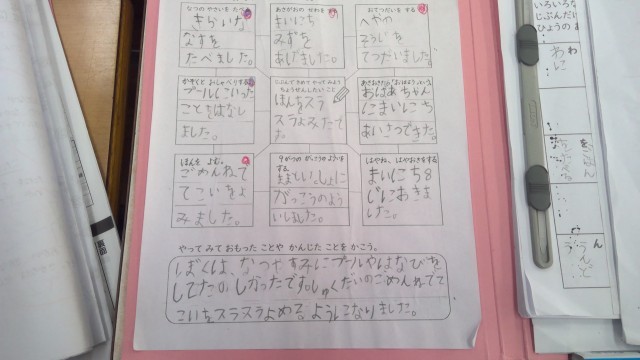 なつの やさいを たべる
きらいな
なすを
たべました。
あさがおの せわを する
まいにち
みずを
あげました。
おてつだいを する
へやの
そうじを
てつだいました。
かぞくと おしゃべりする
プールにいった
ことをはなし
ました。
じぶんで きめて やって みよう
ちょうせんしたい こと
ほんをスラ
スラよみたいで
す。
おばあちゃん
にまいにち
あいさつできた。
ほんを よむ。
ごめんねて
てこいをよ
みました。
9がつの がっこうの よういを する
ままといっしょに
がっこうのよう
いしました。
はやね、はやおきをする
まいにち8
じにおきま
した。
やって みて おもった ことや かんじた ことを かこう。
ぼくは、なつやすみにプールやはなびを
してたのしかったです。しゅくだいのごめんねてて
こいをスラスラよめる。ようになりました。